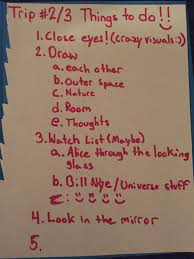 Trip #2/3 Things to do!!
1. Close eyes! (Crazy visuals :)
2. Draw
a. each other
b. Outer space
c. Nature
d. Room
e. Thoughts
3. Watch List (Maybe)
a. Alice through the looking
glass
b. Bill Nye/Universe stuff
4. Look in the mirror
5.